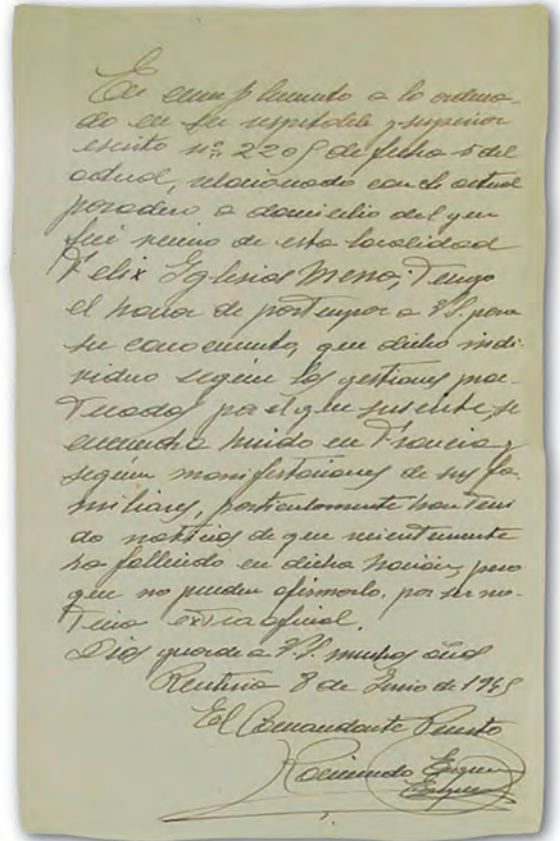 En cumplimento a lo ordena-
do en su respetable y superior
escrito nº: 2205 de fecha 5 del
actual, relacionado con el actual
paradero o domicilio del que
fué vecino de esta localidad
Felix Iglesias Meno; Tengo
el honor de participar a V.S. para
su conocimiento, que dicho indi-
viduo según las gestiones prac-
ticadas por el que suscribe, se
encuentra huido en Francia y
según manifestaciones de sus fa-
miliares, particularmente han teni
do noticias de que recientemente
ha fallecido en dicha nación, pero
que no pueden afirmarlo, por ser no-
ticia extraoficial.
Dios guarde a V.S. muchos años
Rentería 8 de Junio de 1945
El Comandante Puesto
Raimundo